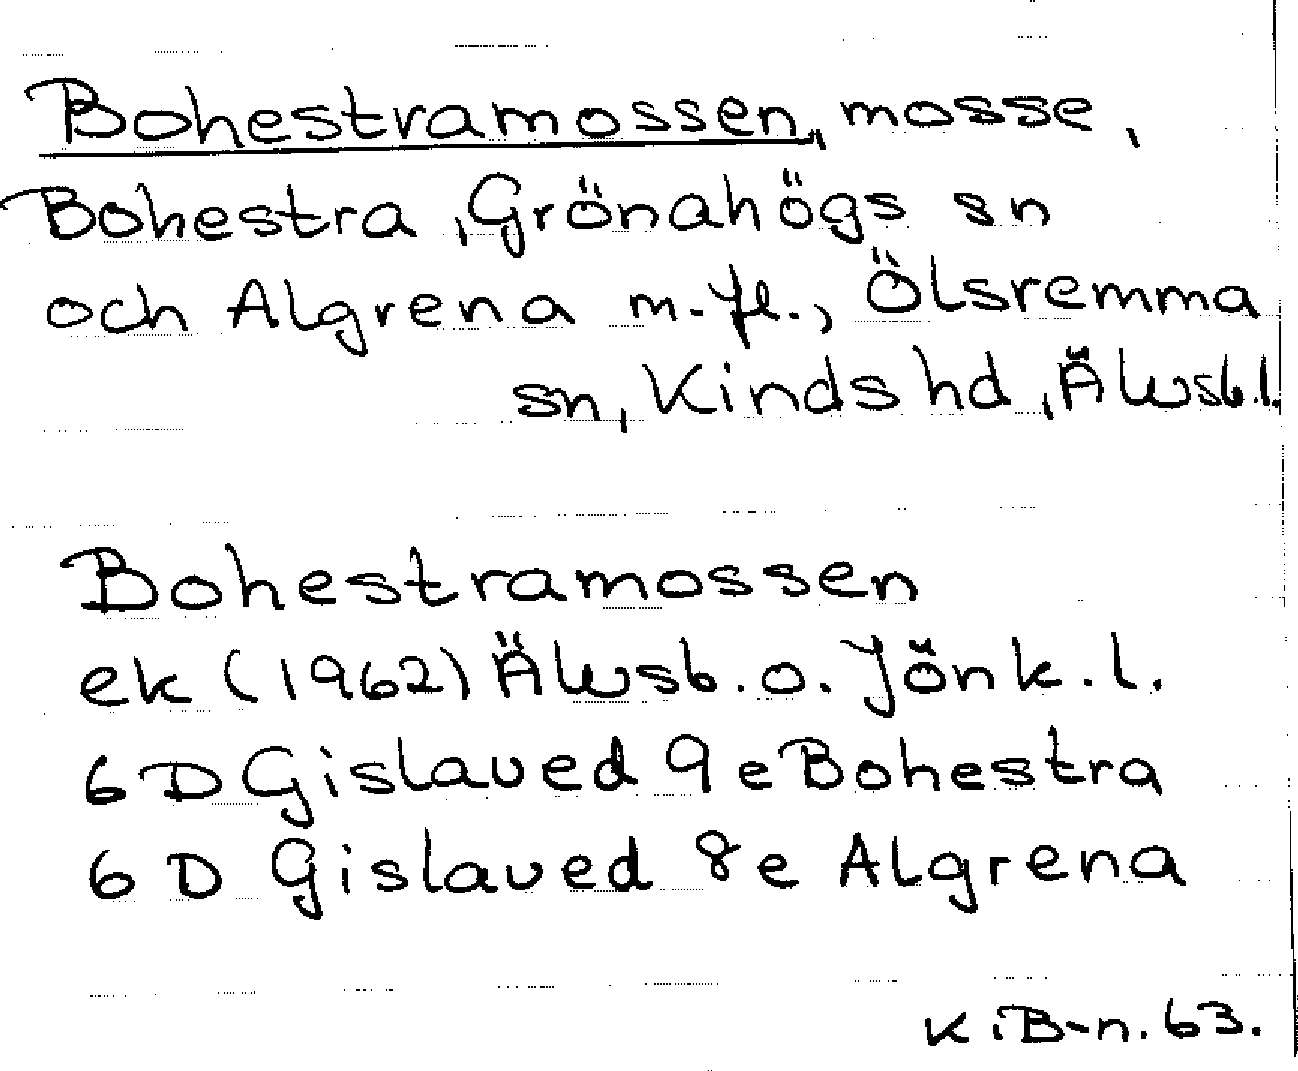 Bohestramossen, mosse,
Bohestra, Grönahögs sn
och Algrena m.fl., Ölsremma
sn, Kinds hd, Älvsb.l.
Bohestramossen
ek (1962) Älvsb. o. Jönk. l.
6 D Gislaved 9 e Bohestra
6 D Gislaved 8 e Algrena
K i B-n. 63.